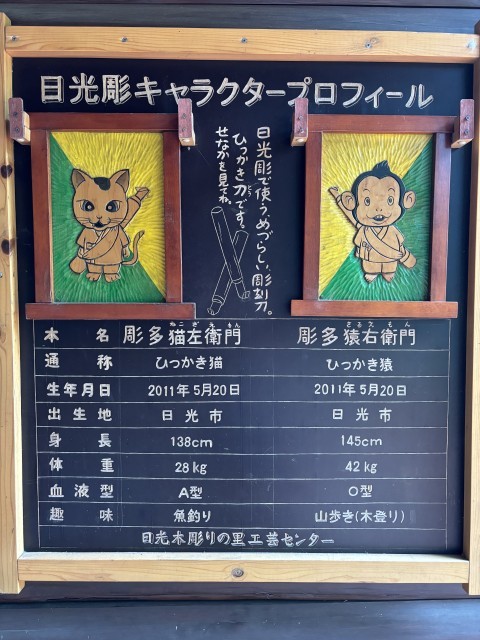 日光彫キャラクタープロフィール
日光彫で使うめづらしい彫刻刀。
ひっかき刀です。
せなかを見てね。
本名 彫多猫左衛門 彫多猿右衛門
通称 ひっかき猫 ひっかき猿
生年月日 2011年5月20日 2011年5月20日
出生地 日光市 日光市
身長 138cm 145cm
体重 28kg 42kg
血液型 A型 O型
趣味 魚釣り 山歩き(木登り)
日光木彫りの里工芸センター